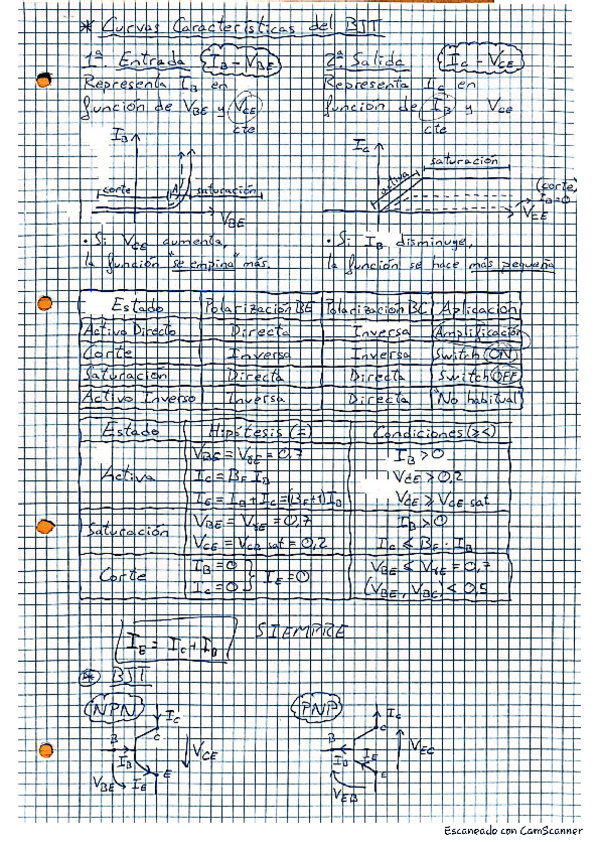 * Curvas Características del BJT
1ª Entrada (IB - VBE)
Representa IB en
función de VBE y VCE
cte
IB
corte
saturación
VBE
· Si VCE aumenta,
la función "se empina" más.
2ª Salida (IC - VCE)
Representa IC en
función de IB y VCE
cte
IC
activa
saturación
(corte)
IB=0
VCE
· Si IB disminuye,
la función se hace más pequeña
Estado Polarización BE Polarización BC Aplicación
Activo Directo Directa Inversa Amplificación
Corte Inversa Inversa Switch ON
Saturación Directa Directa Switch OFF
Activo Inverso Inversa Directa No habitual
Estado Hipótesis (=) Condiciones (><)
Activa
VBE = VγE = 0,7
IC = βF IB
IE = IB + IC = (βF+1) IB
IB > 0
VCE > 0,2
VCE ≥ VCE sat
Saturación
VBE = VγE = 0,7
VCE = VCE sat = 0,2
IB > 0
IC < βF · IB
Corte
IB = 0
IC = 0 } IE = 0
VBE < VγE = 0,7
(VBE, VBC) < 0,5
IE = IC + IB SIEMPRE
* BJT
NPN
IC
C
B
IB
VCE
E
VBE
IE
PNP
IC
C
B
IB
IE
VEC
E
VEB
Escaneado con CamScanner